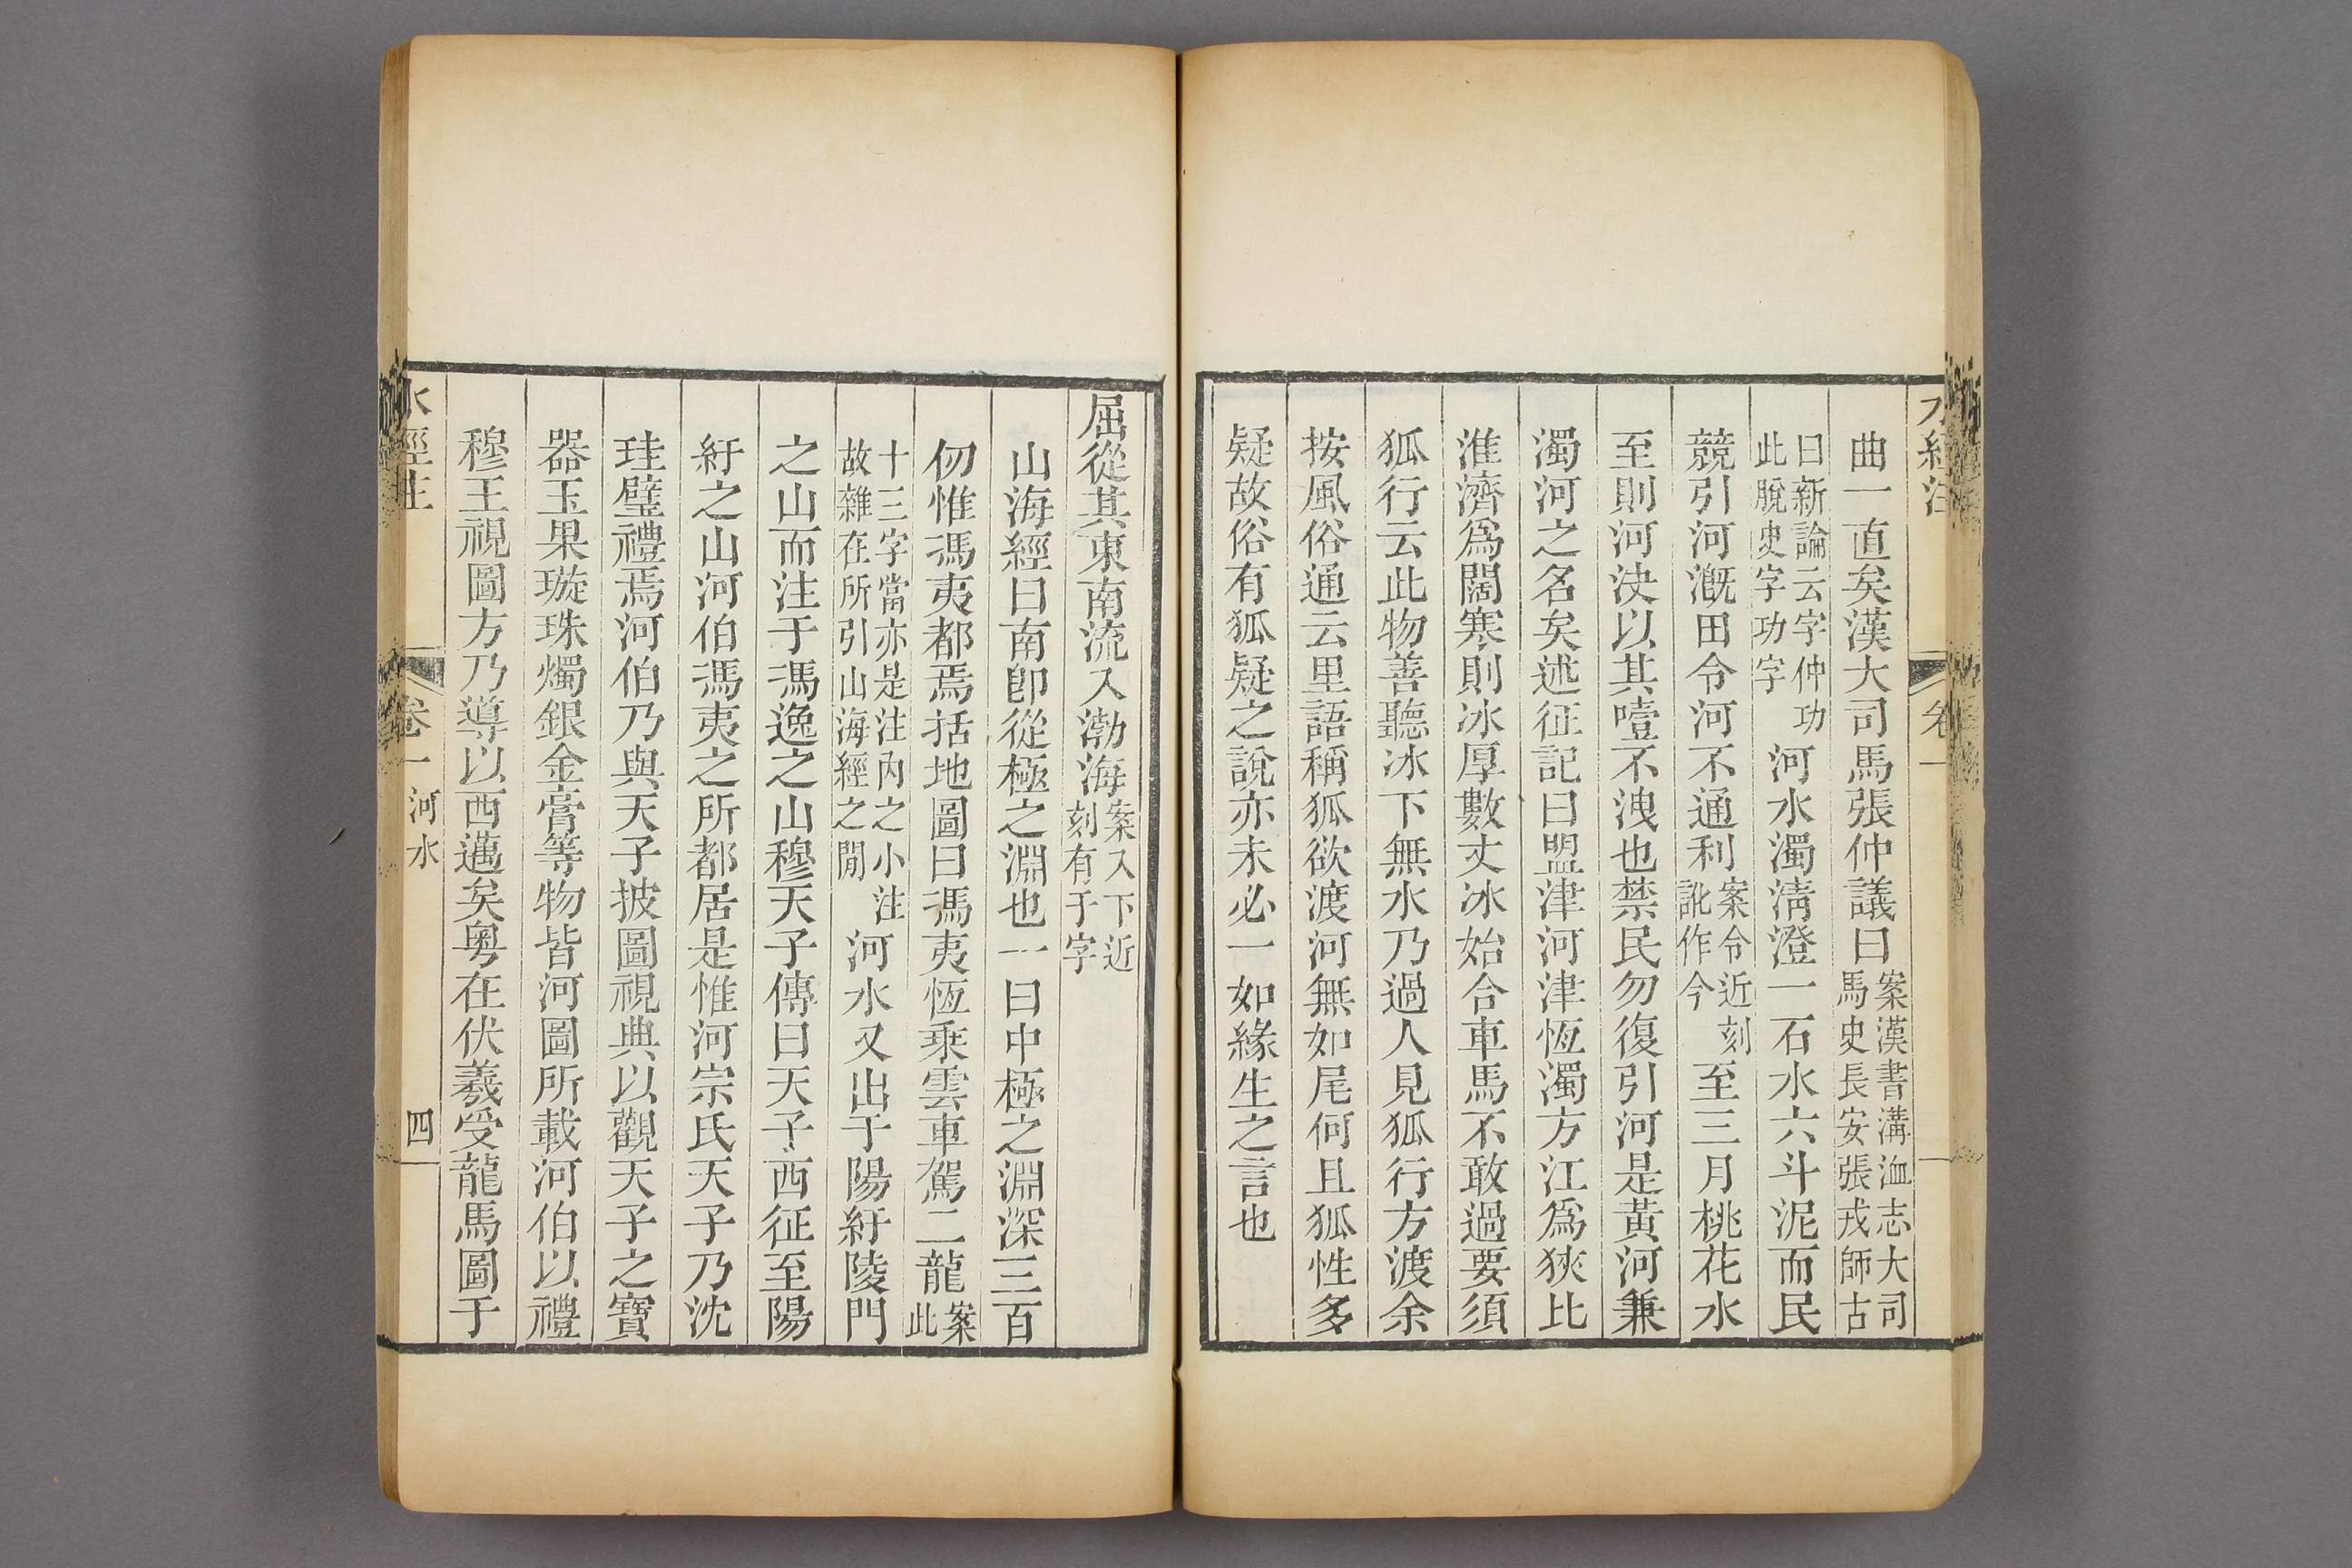 水經注 卷一
曲一直矣漢大司馬張仲議曰案漢書溝洫志大司馬史長安張戎師古
曰新論云字仲功此脫史字功字河水濁淸澄一石水六斗泥而民
競引河漑田令河不通利案令近刻訛作今至三月桃花水
至則河決以其噎不洩也禁民勿復引河是黃河兼
濁河之名矣述征記曰盟津河津恆濁方江爲狹比
淮濟爲闊寒則冰厚數丈冰始合車馬不敢過要須
狐行云此物善聽冰下無水乃過人見狐行方渡余
按風俗通云里語稱狐欲渡河無如尾何且狐性多
疑故俗有狐疑之說亦未必一如緣生之言也
屈從其東南流入渤海案入下近刻有于字
山海經曰南卽從極之淵也一曰中極之淵深三百
仞惟馮夷都焉括地圖曰馮夷恆乘雲車駕二龍案此
十三字當亦是注內之小注故雜在所引山海經之閒河水又出于陽紆陵門
之山而注于馮逸之山穆天子傳曰天子西征至陽
紆之山河伯馮夷之所都居是惟河宗氏天子乃沈
珪璧禮焉河伯乃與天子披圖視典以觀天子之寶
器玉果璇珠燭銀金膏等物皆河圖所載河伯以禮
穆王視圖方乃導以西邁矣粤在伏羲受龍馬圖于
水經注 卷一 河水 四